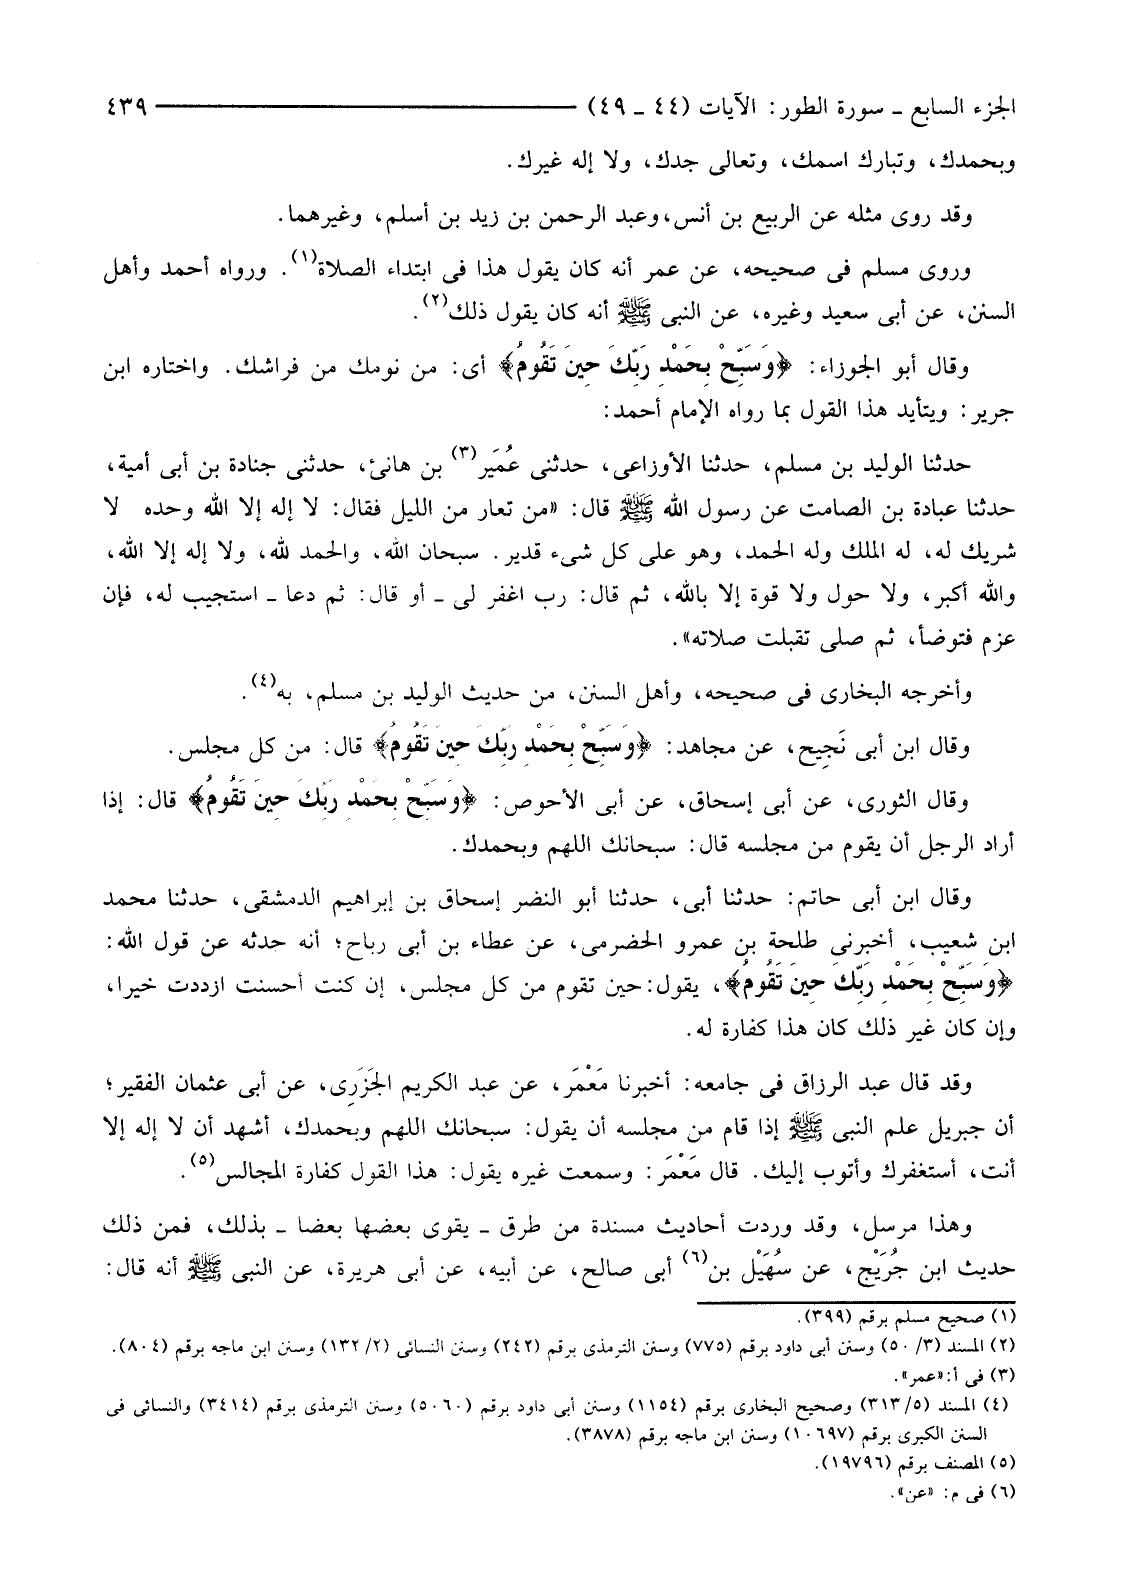 الجزء السابع ـ سورة الطور: الآيات (٤٤ ـ ٤٩) ٤٣٩
وبحمدك، وتبارك اسمك، وتعالى جدك، ولا إله غيرك.
وقد روى مثله عن الربيع بن أنس،وعبد الرحمن بن زيد بن أسلم، وغيرهما.
وروى مسلم فى صحيحه، عن عمر أنه كان يقول هذا فى ابتداء الصلاة(١). ورواه أحمد وأهل
السنن، عن أبى سعيد وغيره، عن النبى ﷺ أنه كان يقول ذلك(٢).
وقال أبو الجوزاء: ﴿وَسَبِّحْ بِحَمْدِ رَبِّكَ حِينَ تَقُومُ﴾ أى: من نومك من فراشك. واختاره ابن
جرير: ويتأيد هذا القول بما رواه الإمام أحمد:
حدثنا الوليد بن مسلم، حدثنا الأوزاعى، حدثنى عُمَير(٣) بن هانئ، حدثنى جنادة بن أبى أمية،
حدثنا عبادة بن الصامت عن رسول الله ﷺ قال: «من تعار من الليل فقال: لا إله إلا الله وحده لا
شريك له، له الملك وله الحمد، وهو على كل شىء قدير. سبحان الله، والحمد لله، ولا إله إلا الله،
والله أكبر، ولا حول ولا قوة إلا بالله، ثم قال: رب اغفر لى ـ أو قال: ثم دعا ـ استجيب له، فإن
عزم فتوضأ، ثم صلى تقبلت صلاته».
وأخرجه البخارى فى صحيحه، وأهل السنن، من حديث الوليد بن مسلم، به(٤).
وقال ابن أبى نَجِيح، عن مجاهد: ﴿وَسَبِّحْ بِحَمْدِ رَبِّكَ حِينَ تَقُومُ﴾ قال: من كل مجلس.
وقال الثورى، عن أبى إسحاق، عن أبى الأحوص: ﴿وَسَبِّحْ بِحَمْدِ رَبِّكَ حِينَ تَقُومُ﴾ قال: إذا
أراد الرجل أن يقوم من مجلسه قال: سبحانك اللهم وبحمدك.
وقال ابن أبى حاتم: حدثنا أبى، حدثنا أبو النضر إسحاق بن إبراهيم الدمشقى، حدثنا محمد
ابن شعيب، أخبرنى طلحة بن عمرو الحضرمى، عن عطاء بن أبى رباح؛ أنه حدثه عن قول الله:
﴿وَسَبِّحْ بِحَمْدِ رَبِّكَ حِينَ تَقُومُ﴾، يقول:حين تقوم من كل مجلس، إن كنت أحسنت ازددت خيرا،
وإن كان غير ذلك كان هذا كفارة له.
وقد قال عبد الرزاق فى جامعه: أخبرنا مَعْمَر، عن عبد الكريم الجَزَرِى، عن أبى عثمان الفقير؛
أن جبريل علم النبى ﷺ إذا قام من مجلسه أن يقول: سبحانك اللهم وبحمدك، أشهد أن لا إله إلا
أنت، أستغفرك وأتوب إليك. قال مَعْمَر: وسمعت غيره يقول: هذا القول كفارة المجالس(٥).
وهذا مرسل، وقد وردت أحاديث مسندة من طرق ـ يقوى بعضها بعضا ـ بذلك، فمن ذلك
حديث ابن جُرَيْج، عن سُهَيْل بن(٦) أبى صالح، عن أبيه، عن أبى هريرة، عن النبى ﷺ أنه قال:
(١) صحيح مسلم برقم (٣٩٩).
(٢) المسند (٣/ ٥٠) وسنن أبى داود برقم (٧٧٥) وسنن الترمذى برقم (٢٤٢) وسنن النسائى (٢/ ١٣٢) وسنن ابن ماجه برقم (٨٠٤).
(٣) فى أ:«عمر».
(٤) المسند (٥/ ٣١٣) وصحيح البخارى برقم (١١٥٤) وسنن أبى داود برقم (٥٠٦٠) وسنن الترمذى برقم (٣٤١٤) والنسائى فى
السنن الكبرى برقم (١٠٦٩٧) وسنن ابن ماجه برقم (٣٨٧٨).
(٥) المصنف برقم (١٩٧٩٦).
(٦) فى م: «عن».